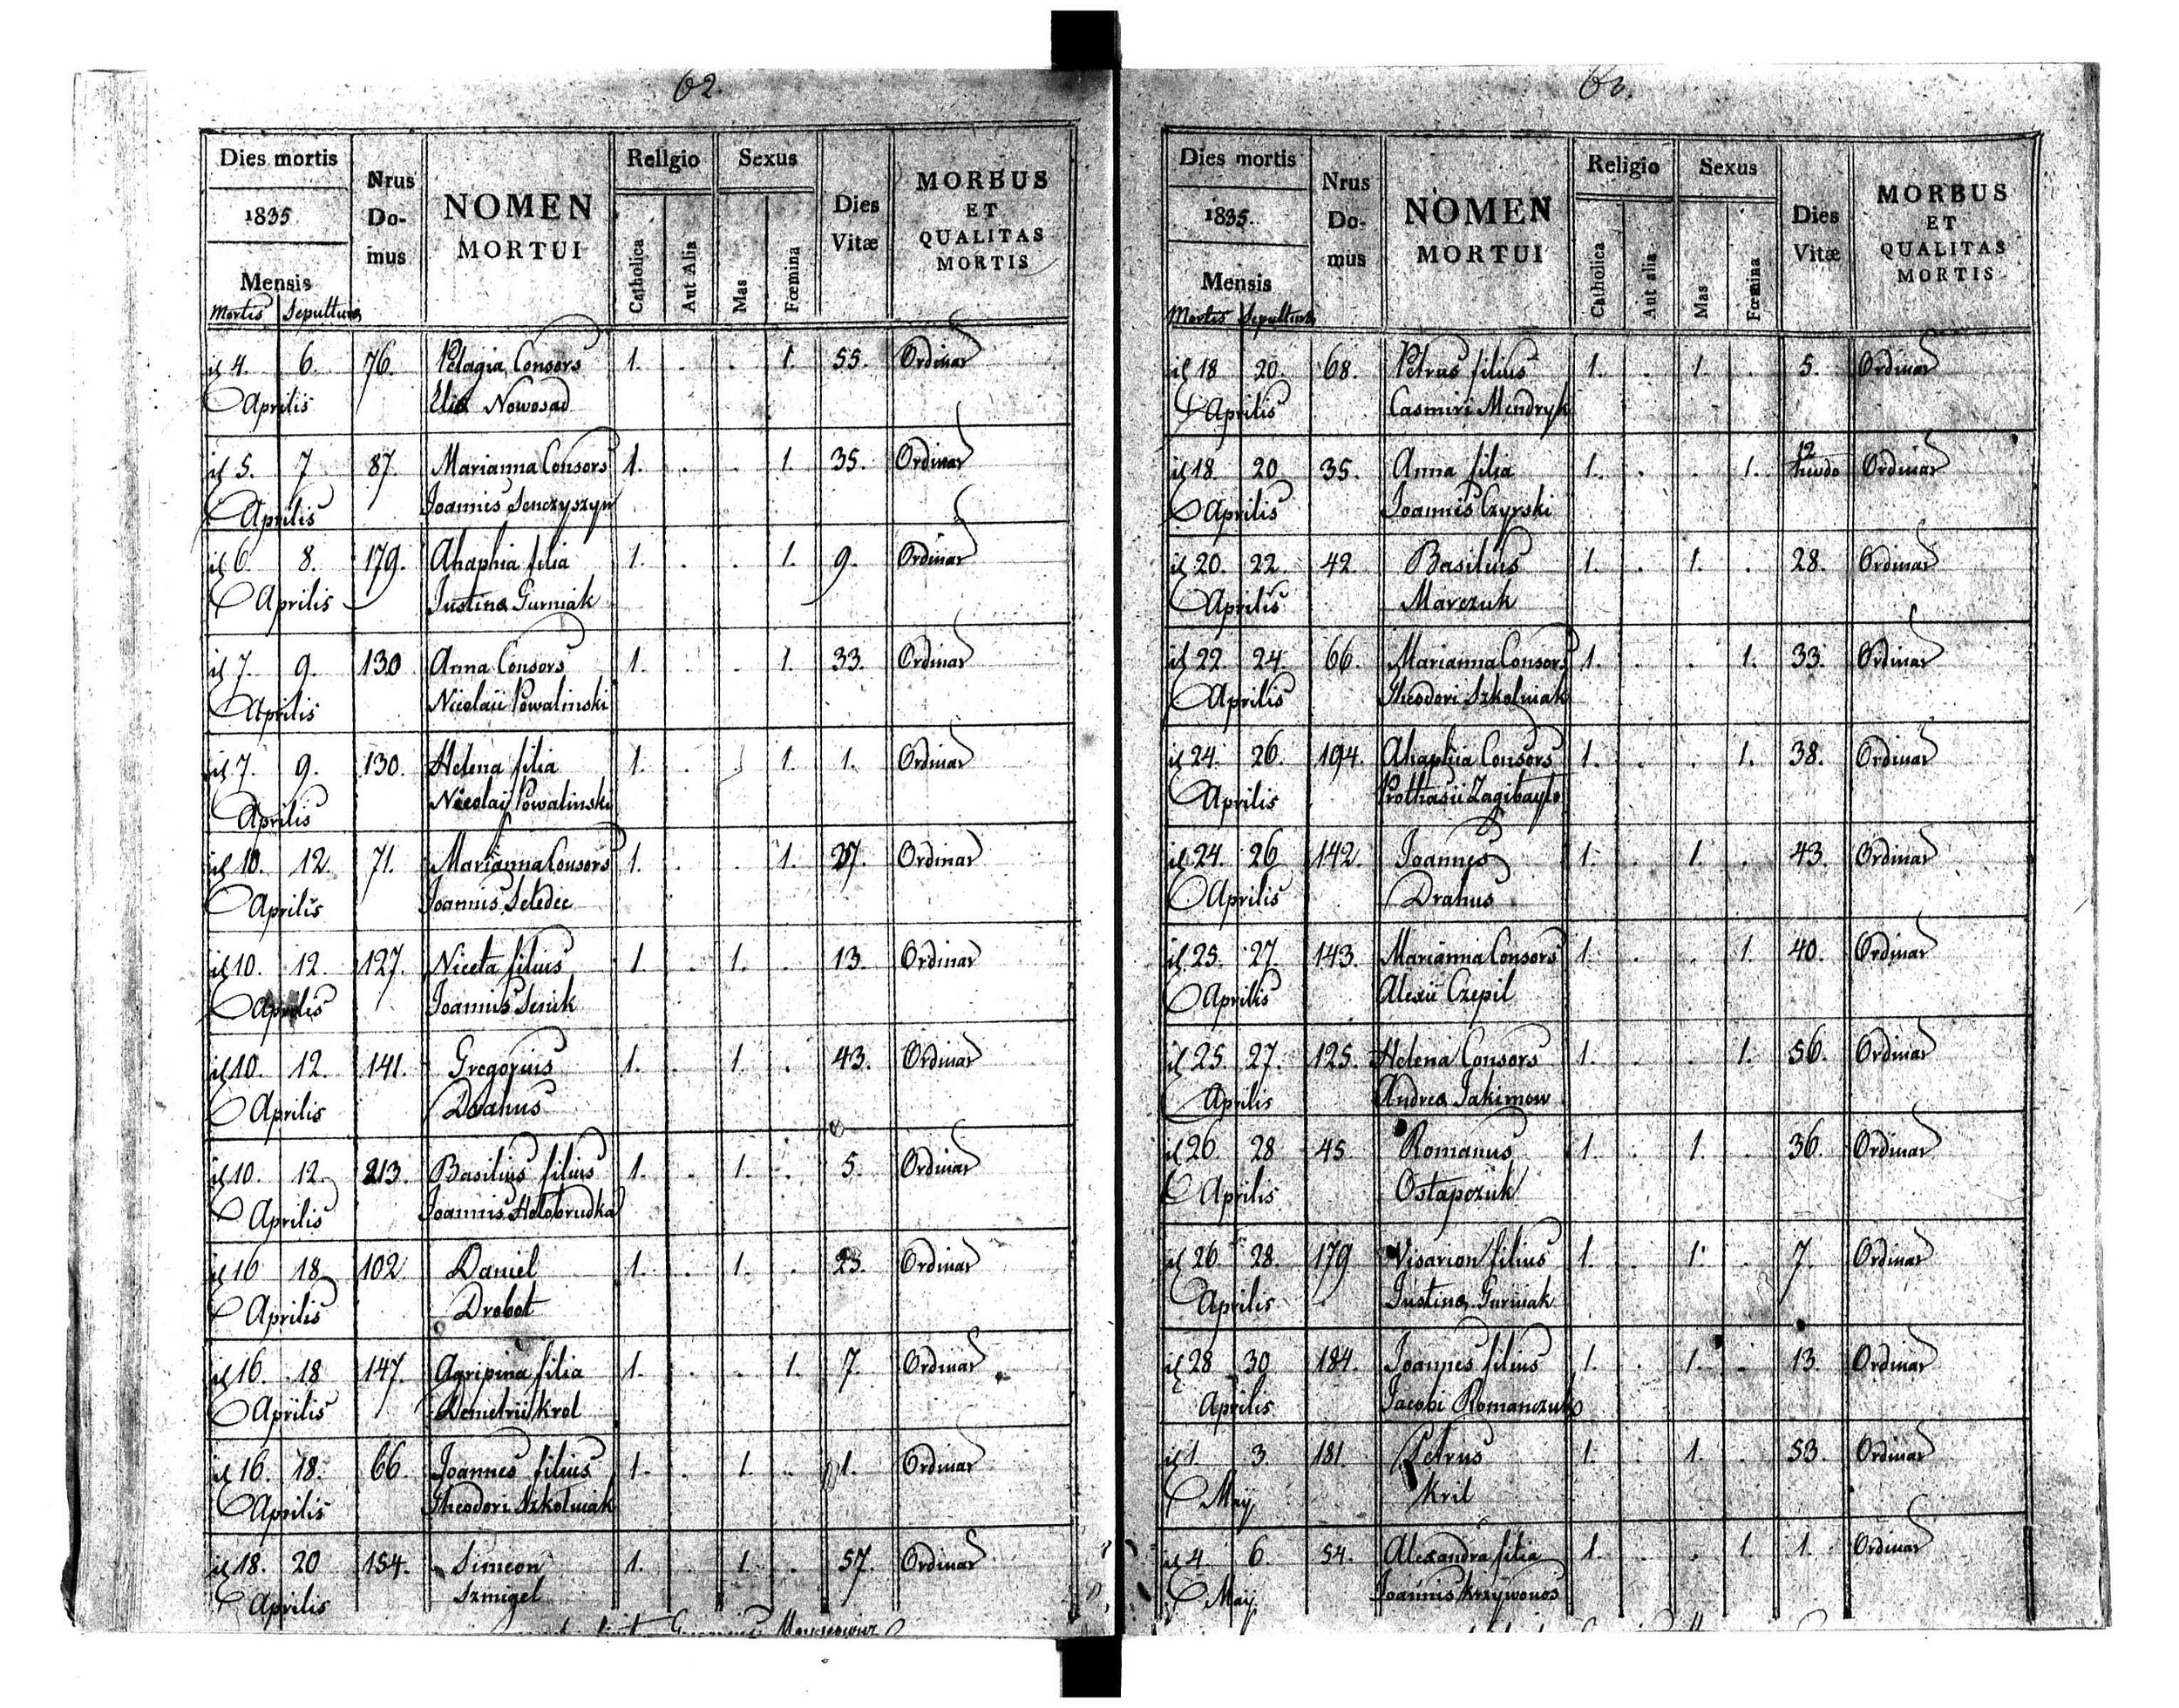 62.
Dies mortis Nrus Do-mus NOMEN MORTUI Religio Sexus Dies Vitæ MORBUS ET QUALITAS MORTIS
1835
Mensis Catholica Aut Alia Mas Fœmina
Mortis Sepulturæ
4. 6. 76. Pelagia Consors 1. . . 1. 55. Ordinar
Aprilis Eliæ Nowosad
5. 7 87 Marianna Consors 1. . . 1. 35. Ordinar
Aprilis Joannis Senczyszyn
6. 8. 179. Ahaphia filia 1. . . 1. 9. Ordinar
Aprilis Justinæ Gurniak
7. 9. 130 Anna Consors 1. . . 1. 33. Ordinar
Aprilis Nicolaii Powalinski
7. 9. 130. Helena filia 1. . . 1. 1. Ordinar
Aprilis Nicolaij Powalinski
10. 12. 71. Marianna Consors 1. . . 1. 37. Ordinar
Aprilis Joannis Seledec
10. 12. 127. Niceta filius 1. . 1. . 13. Ordinar
Aprilis Joannis Senik
10. 12. 141. Gregorius 1. . 1. . 43. Ordinar
Aprilis Drahus
10. 12. 213. Basilius filius 1. . 1. . 5. Ordinar
Aprilis Joannis Holobrudka
16 18 102 Daniel 1. . 1. . 23. Ordinar
Aprilis Drobot
16. 18 147. Agripina filia 1. . . 1. 7. Ordinar
Aprilis Demetrii Krol
16. 18. 66. Joannes filius 1. . 1. . 1. Ordinar
Aprilis Theodori Szkolniak
18. 20 154. Simeon 1. . 1. . 57. Ordinar
Aprilis Szmigel
63.
Dies mortis Nrus Do-mus NOMEN MORTUI Religio Sexus Dies Vitæ MORBUS ET QUALITAS MORTIS
1835.
Mensis Catholica Aut alia Mas Fœmina
Mortis Sepulturæ
18 20. 68. Petrus filius 1. . 1. . 5. Ordinar
Aprilis Casmiri Mendryk
18. 20 35. Anna filia 1. . . 1. 12 Ordinar
Aprilis Joannis Czyrski
20. 22. 42. Basilius 1. . 1. . 28. Ordinar
Aprilis Marczuk
22. 24. 66. Marianna Consors 1. . . 1. 33. Ordinar
Aprilis Theodori Szkolniak
24. 26. 194. Ahaphia Consors 1. . . 1. 38. Ordinar
Aprilis Prothasii Zagibaylo
24. 26 142. Joannes 1. . 1. . 43. Ordinar
Aprilis Drahus
25. 27. 143. Marianna Consors 1. . . 1. 40. Ordinar
Aprilis Alexii Czepil
25. 27. 125. Helena Consors 1. . . 1. 56. Ordinar
Aprilis Andreæ Jakimow
26. 28 45. Romanus 1. . 1. . 36. Ordinar
Aprilis Ostapczuk
26. 28. 179 Visarion filius 1. . 1. . 7. Ordinar
Aprilis Justinæ Gurniak
28 30 184. Joannes filius 1. . 1. . 13. Ordinar
Aprilis Jacobi Romanczuk
1. 3. 181. Petrus 1. . 1. . 53. Ordinar
May Kril
4. 6 54. Alexandra filia 1. . . 1. 1. Ordinar
May Joannis Krzywonos